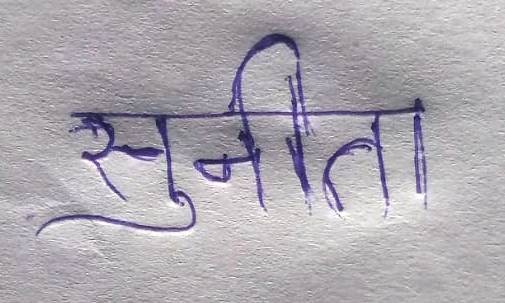 सुनीता